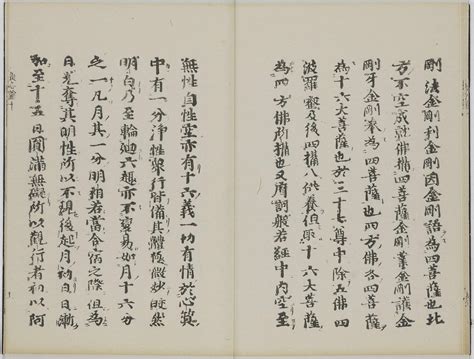 剛法金剛利金剛因金剛語為四菩薩也北
方不空成就佛四菩薩金剛業金剛護金
剛牙金剛拳為四菩薩也四方佛各四菩薩
為十六大菩薩也於三十七尊中除五佛四
波羅蜜及後四攝八供養但取十六大菩薩
為四方佛所攝也又摩訶般若經中內空至
無性自性空亦有十六義一切有情於心質
中有一分淨性眾行皆備其體極微妙皎然
明白乃至輪迴六趣亦不變易如月十六分
之一凡月其一分明相若當合宿之際但為
日光奪其明性所以不現後起月初日日漸
加至十五日圓滿無礙所以觀行者初以阿